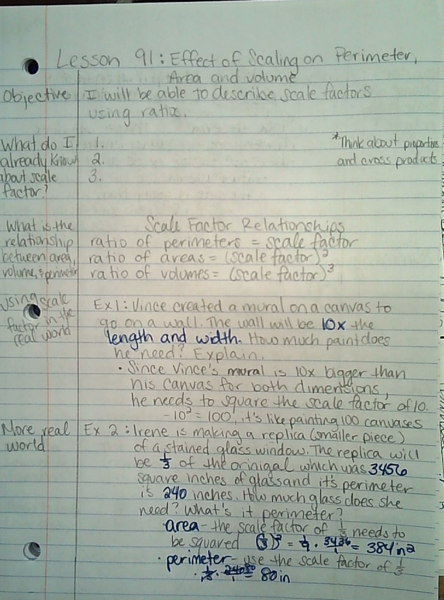 Lesson 91: Effect of Scaling on Perimeter,
Area and volume
Objective
I will be able to describe scale factors
using ratix.
What do I
already know
about scale
factor?
1.
2.
3.
*Think about proportion
and cross products
What is the
relationship
between area,
volume, & perimeter
Scale Factor Relationships
ratio of perimeters = scale factor
ratio of areas = (scale factor)²
ratio of volumes = (scale factor)³
Using scale
factor in the
real world
Ex 1: Vince created a mural on a canvas to
go on a wall. The wall will be 10x the
length and width. How much paint does
he need? Explain.
• Since Vince's mural is 10x bigger than
his canvas for both dimensions,
he needs to square the scale factor of 10.
- 10² = 100, it's like painting 100 canvases
More real
world
Ex 2: Irene is making a replica (smaller piece)
of a stained glass window. The replica will
be 1/3 of the orinigal which was 3456
square inches of glass and it's perimeter
is 240 inches. How much glass does she
need? What's it perimeter?
area - the scale factor of 1/3 needs to
be squared (1/3)² = 1/9 · 3456/1 = 384 in²
• perimeter - use the scale factor of 1/3
· 1/3 · 240/1 = 80 in